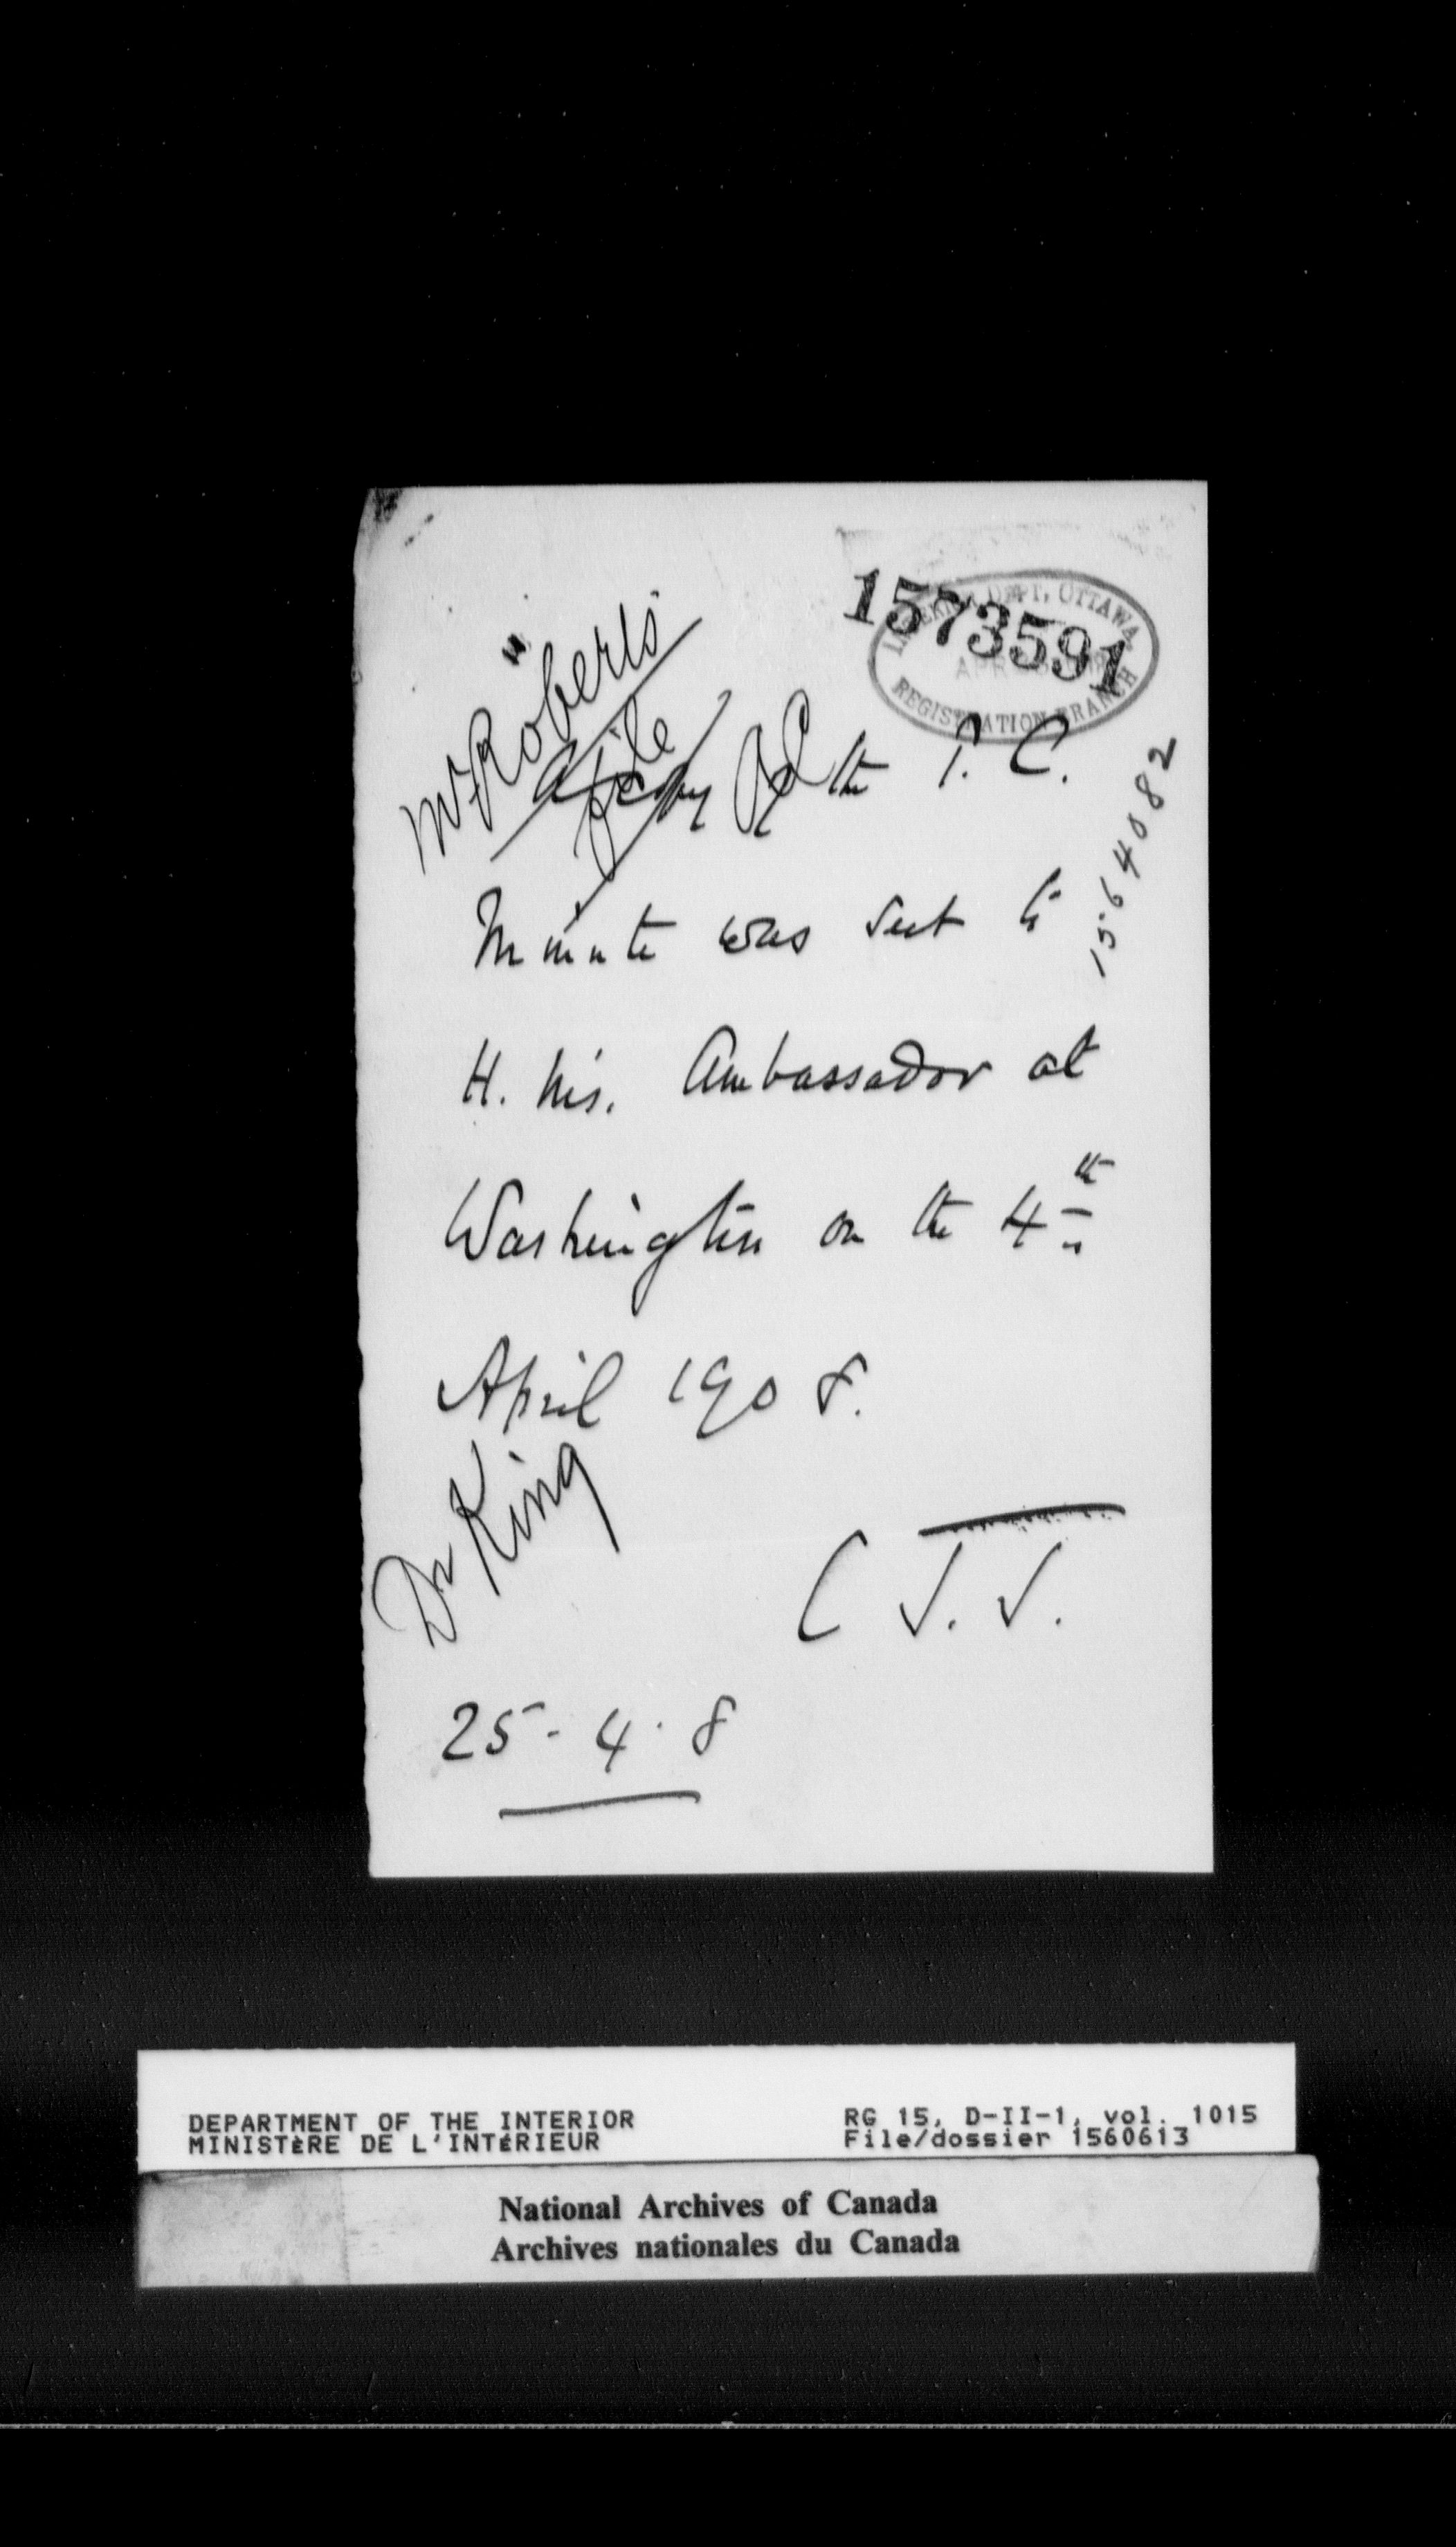 1573591
INTERIOR DEPT, OTTAWA
APR
REGISTRATION BRANCH
Mr Roberts
file
1564082
A copy of the P. C.
Minute was sent to
H. M's. Ambassador at
Washington on the 4th
April 1908.
Dr King
C J. J.
25-4.8
DEPARTMENT OF THE INTERIOR
MINISTÈRE DE L'INTÉRIEUR
RG 15, D-II-1, vol. 1015
File/dossier 1560613
National Archives of Canada
Archives nationales du Canada